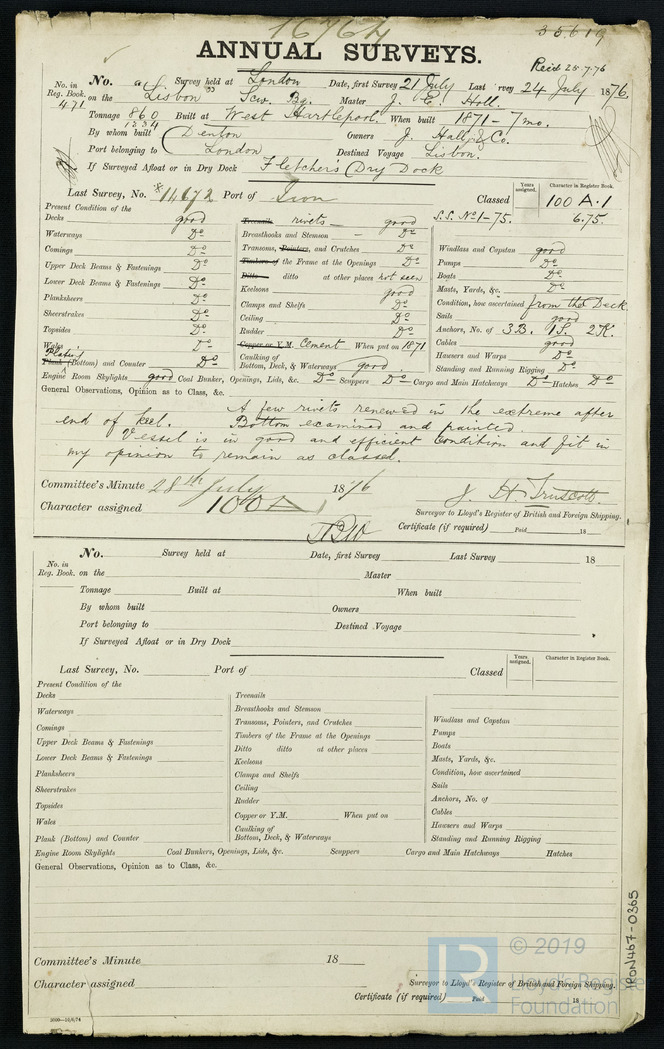 16767 35.619
ANNUAL SURVEYS.
Recd 25.7.76
No. in Reg. Book. 471
No. Survey held at London Date, first Survey 21 July Last Survey 24 July 1876
on the "Lisbon" Scw. Bg. Master J. E. Holl.
Tonnage 860 Built at West Hartlepool. When built 1871 - 7 mo.
1234
By whom built Denton Owners J. Hall & Co.
Port belonging to London Destined Voyage Lisbon.
If Surveyed Afloat or in Dry Dock Fletchers Dry Dock
Last Survey, No. 14672 Port of Iron Classed
Years assigned. Character in Register Book.
100 A.1
S.S. No 1-75. 6.75.
Present Condition of the
Decks good
Waterways Do
Comings Do
Upper Deck Beams & Fastenings Do
Lower Deck Beams & Fastenings Do
Planksheers Do
Sheerstrakes Do
Topsides Do
Wales Do
Plating
Plank (Bottom) and Counter Do
Treenails rivets good
Breasthooks and Stemson Do
Transoms, Pointers, and Crutches Do
Timbers of the Frame at the Openings Do
Ditto ditto at other places not seen
Keelsons good
Clamps and Shelfs Do
Ceiling Do
Rudder Do
Copper or Y.M. Cement When put on 1871
Caulking of
Bottom, Deck, & Waterways good
Windlass and Capstan good
Pumps Do
Boats Do
Masts, Yards, &c. Do
Condition, how ascertained from the Deck
Sails good
Anchors, No. of 3B. 1S. 2K.
Cables good
Hawsers and Warps Do
Standing and Running Rigging Do
Engine Room Skylights good Coal Bunker, Openings, Lids, &c. Do Scuppers Do Cargo and Main Hatchways Do Hatches Do
General Observations, Opinion as to Class, &c.
A few rivets renewed in the extreme after
end of keel. Bottom examined and painted.
Vessel is in good and efficient condition and fit in
my opinion to remain as classed.
Committee's Minute 28th July 1876
Character assigned 100A
J. H. Truscott.
Surveyor to Lloyd's Register of British and Foreign Shipping.
Certificate (if required) Paid 18
No. in Reg. Book.
No. Survey held at Date, first Survey Last Survey 18
on the Master
Tonnage Built at When built
By whom built Owners
Port belonging to Destined Voyage
If Surveyed Afloat or in Dry Dock
Last Survey, No. Port of Classed
Years assigned. Character in Register Book.
Present Condition of the
Decks
Waterways
Comings
Upper Deck Beams & Fastenings
Lower Deck Beams & Fastenings
Planksheers
Sheerstrakes
Topsides
Wales
Plank (Bottom) and Counter
Treenails
Breasthooks and Stemson
Transoms, Pointers, and Crutches
Timbers of the Frame at the Openings
Ditto ditto at other places
Keelsons
Clamps and Shelfs
Ceiling
Rudder
Copper or Y.M. When put on
Caulking of
Bottom, Deck, & Waterways
Windlass and Capstan
Pumps
Boats
Masts, Yards, &c.
Condition, how ascertained
Sails
Anchors, No. of
Cables
Hawsers and Warps
Standing and Running Rigging
Engine Room Skylights Coal Bunkers, Openings, Lids, &c. Scuppers Cargo and Main Hatchways Hatches
General Observations, Opinion as to Class, &c.
Committee's Minute 18
Character assigned
Surveyor to Lloyd's Register of British and Foreign Shipping.
Certificate (if required) Paid 18
2000—16/6/74
IRON467-0365
LR © 2019
Lloyd's Register
Foundation